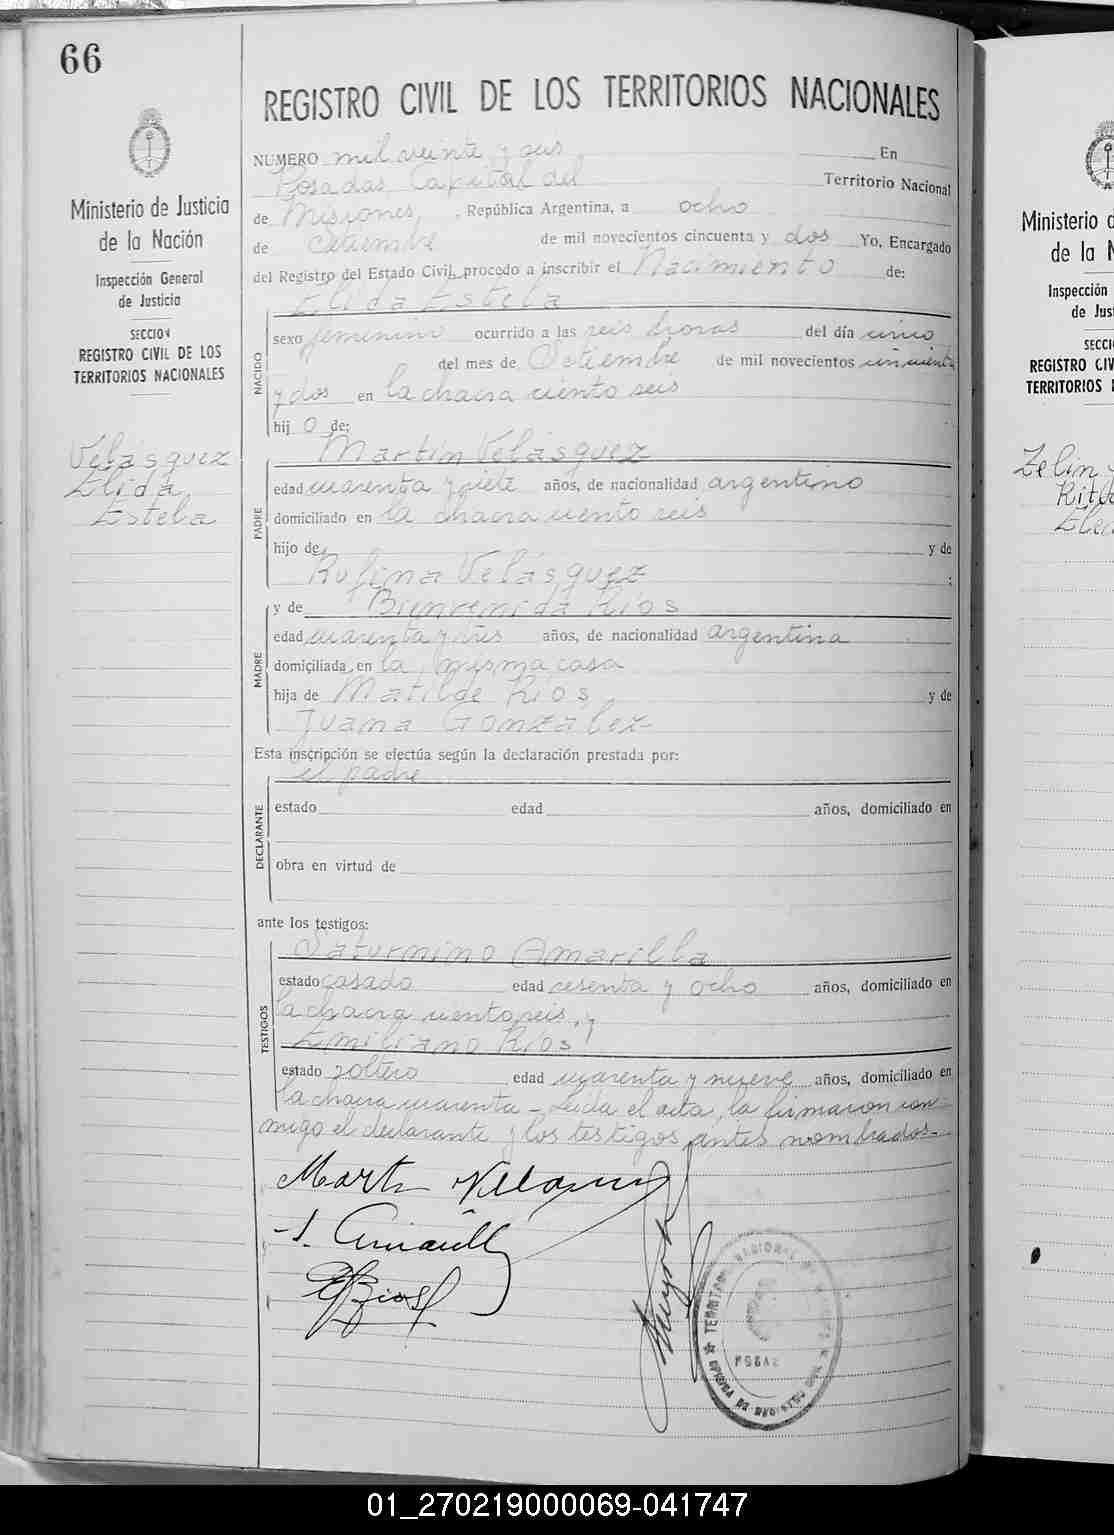 66
REGISTRO CIVIL DE LOS TERRITORIOS NACIONALES
Ministerio de Justicia
de la Nación
Inspección General
de Justicia
SECCION
REGISTRO CIVIL DE LOS
TERRITORIOS NACIONALES
Velásquez
Elida
Estela
NUMERO mil veinte y seis En
Posadas Capital del Territorio Nacional
de Misiones, República Argentina, a ocho
de Setiembre de mil novecientos cincuenta y dos Yo, Encargado
del Registro del Estado Civil, procedo a inscribir el Nacimiento de:
Elida Estela
NACIDO
sexo femenino ocurrido a las seis horas del día uno
del mes de Setiembre de mil novecientos cincuenta
y dos en la chacra ciento seis
hij o de:
Martín Velásquez
PADRE
edad cuarenta y siete años, de nacionalidad argentino
domiciliado en la chacra ciento seis
hijo de y de
Rufina Velásquez ;
y de Bienvenida Ríos
MADRE
edad cuarenta y tres años, de nacionalidad argentina
domiciliada en la misma casa
hija de Matilde Ríos y de
Juana González
Esta inscripción se efectúa según la declaración prestada por:
el padre
DECLARANTE
estado edad años, domiciliado en
obra en virtud de
ante los testigos:
Saturnino Amarilla
TESTIGOS
estado casado edad sesenta y ocho años, domiciliado en
la chacra ciento seis, y
Emiliano Ríos
estado soltero edad cuarenta y nueve años, domiciliado en
la chacra cuarenta - Leida el acta, la firmaron con-
migo el declarante y los testigos antes nombrados.-
Martin Velasquez
S. Amarilla
E Rios
TERRITORIO NACIONAL DE MISIONES
POSADAS
Ministerio d
de la N
Inspección
de Jus
SECCI
REGISTRO CIV
TERRITORIOS
Zelin